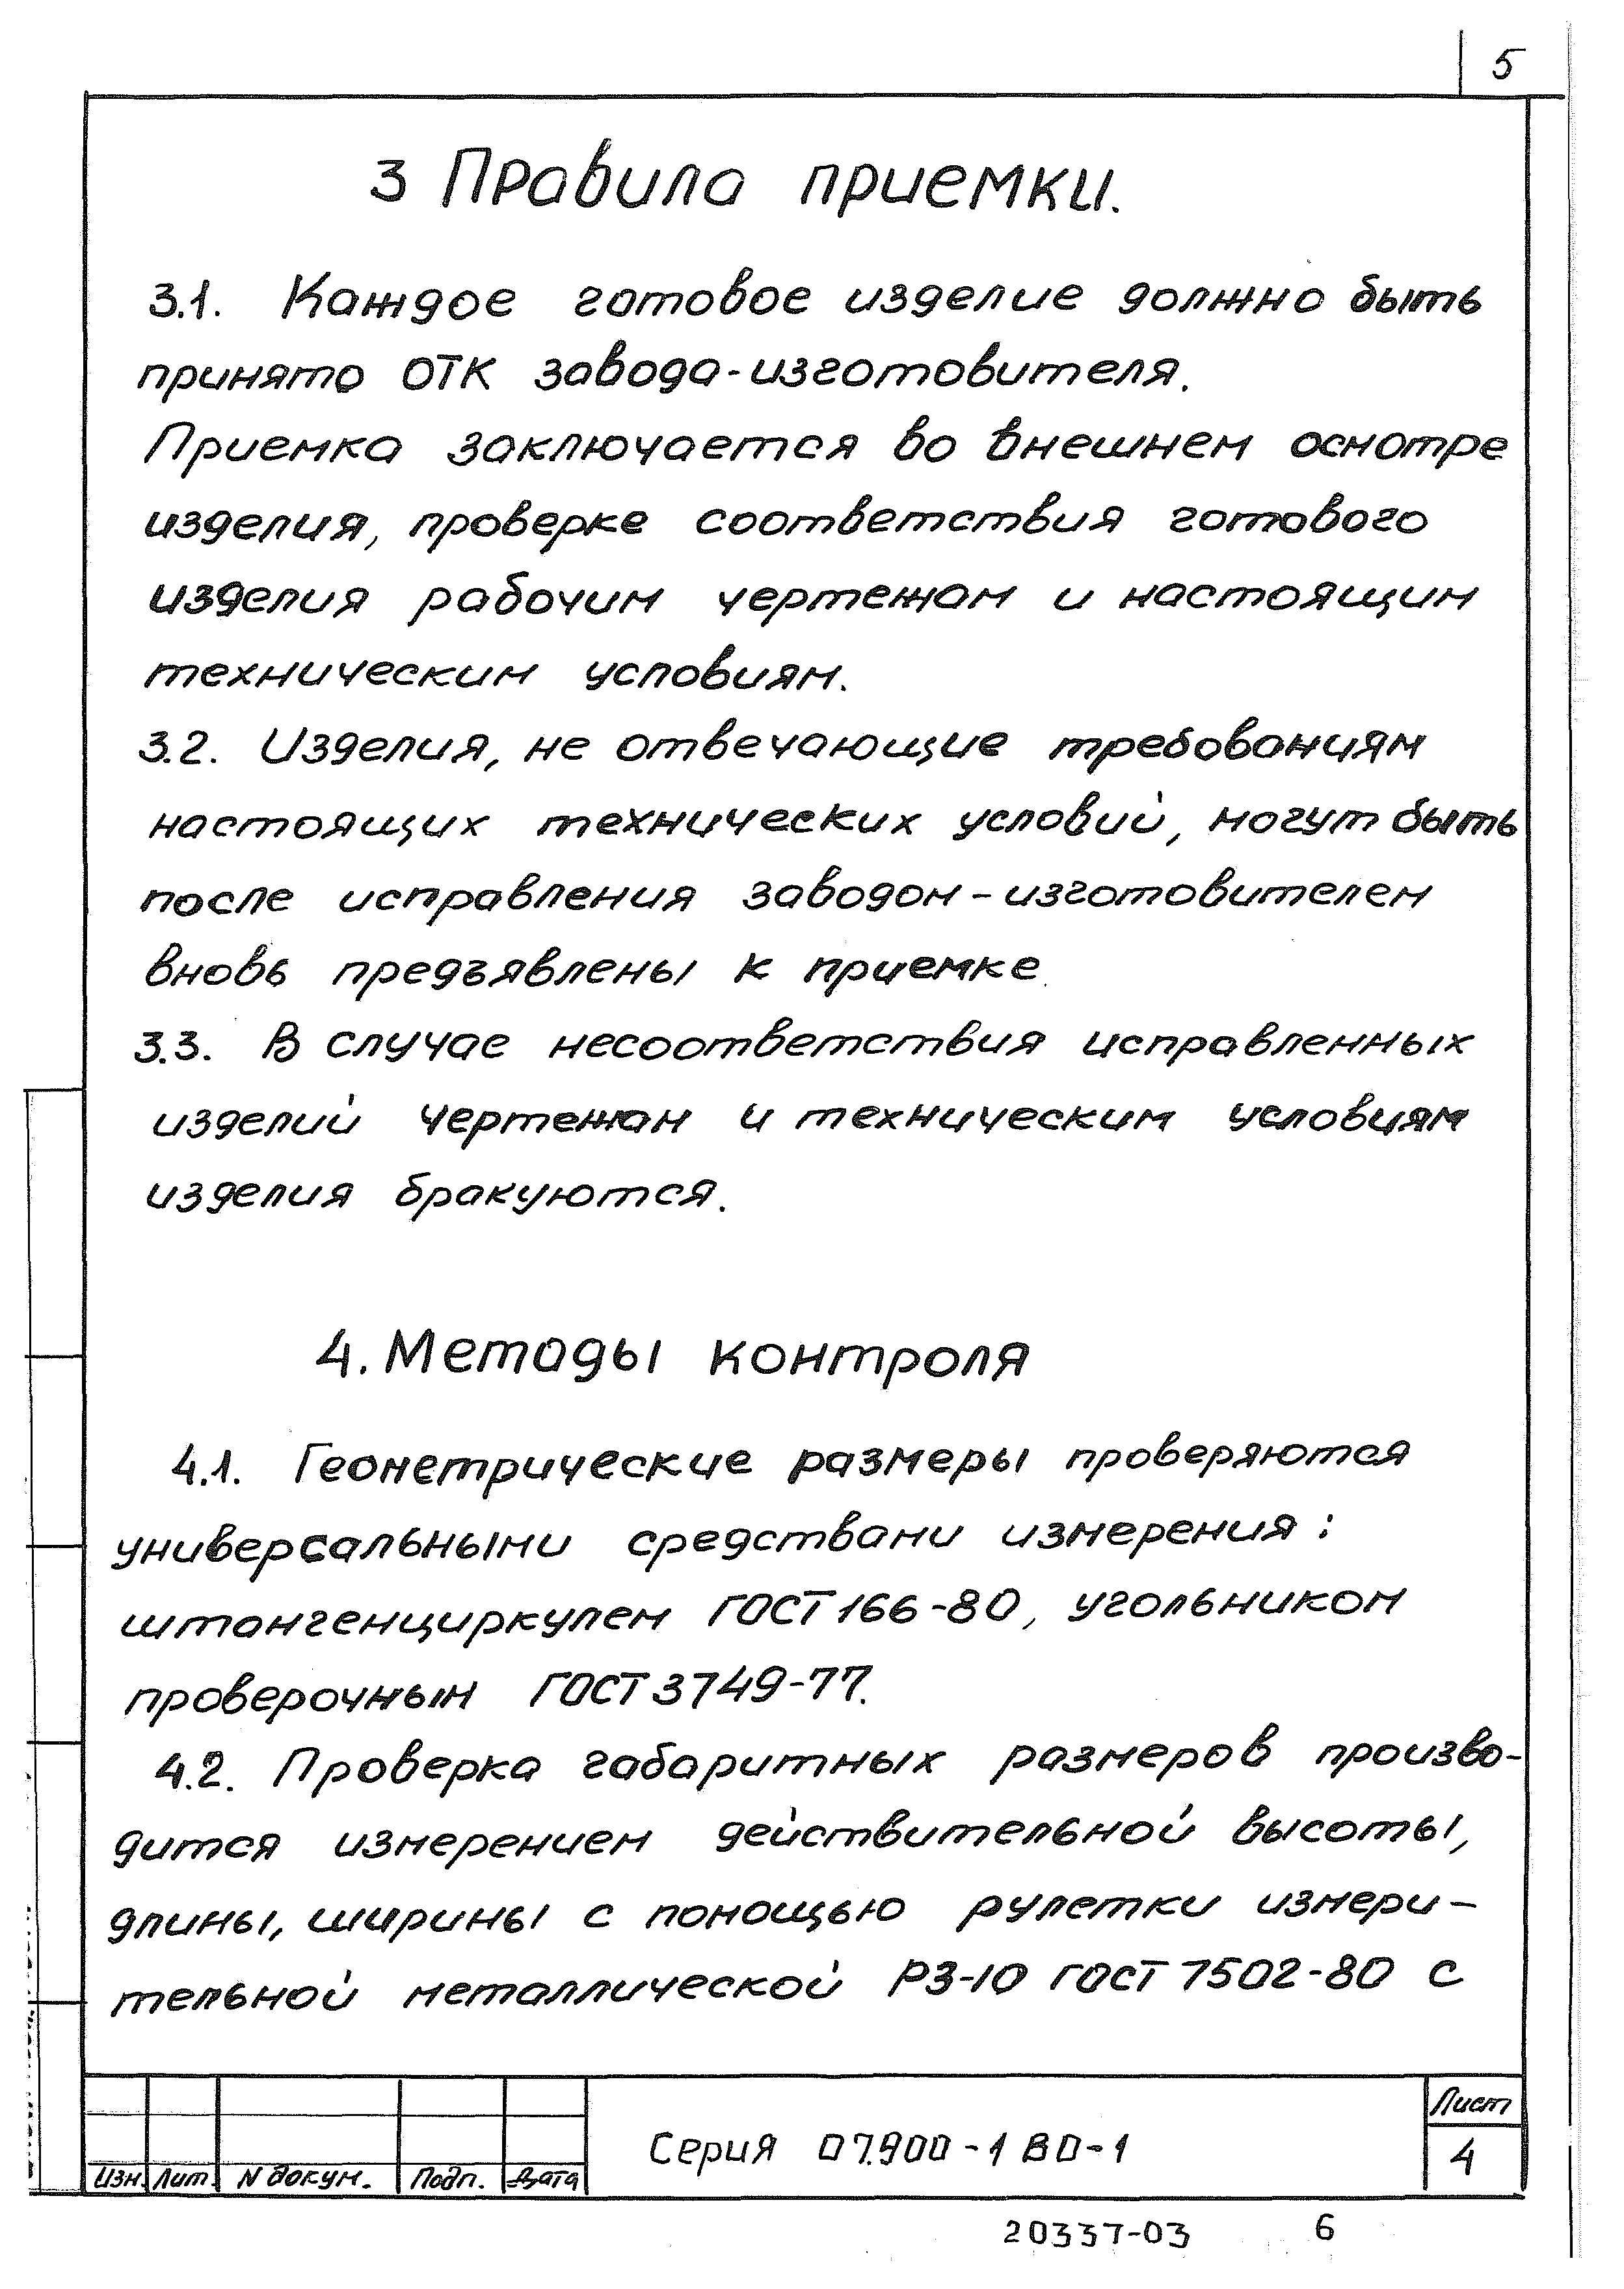 5
3 Правила приемки.
3.1. Каждое готовое изделие должно быть
принято ОТК завода-изготовителя.
Приемка заключается во внешнем осмотре
изделия, проверке соответствия готового
изделия рабочим чертежам и настоящим
техническим условиям.
3.2. Изделия, не отвечающие требованиям
настоящих технических условий, могут быть
после исправления заводом-изготовителем
вновь предъявлены к приемке.
3.3. В случае несоответствия исправленных
изделий чертежам и техническим условиям
изделия бракуются.
4. Методы контроля
4.1. Геометрические размеры проверяются
универсальными средствами измерения:
штангенциркулем ГОСТ 166-80, угольником
проверочным ГОСТ 3749-77.
4.2. Проверка габаритных размеров произво-
дится измерением действительной высоты,
длины, ширины с помощью рулетки измери-
тельной металлической РЗ-10 ГОСТ 7502-80 с
Изм. Лит. N докум. Подп. Дата
Серия 07.900-1 ВО-1
Лист
4
20337-03 6